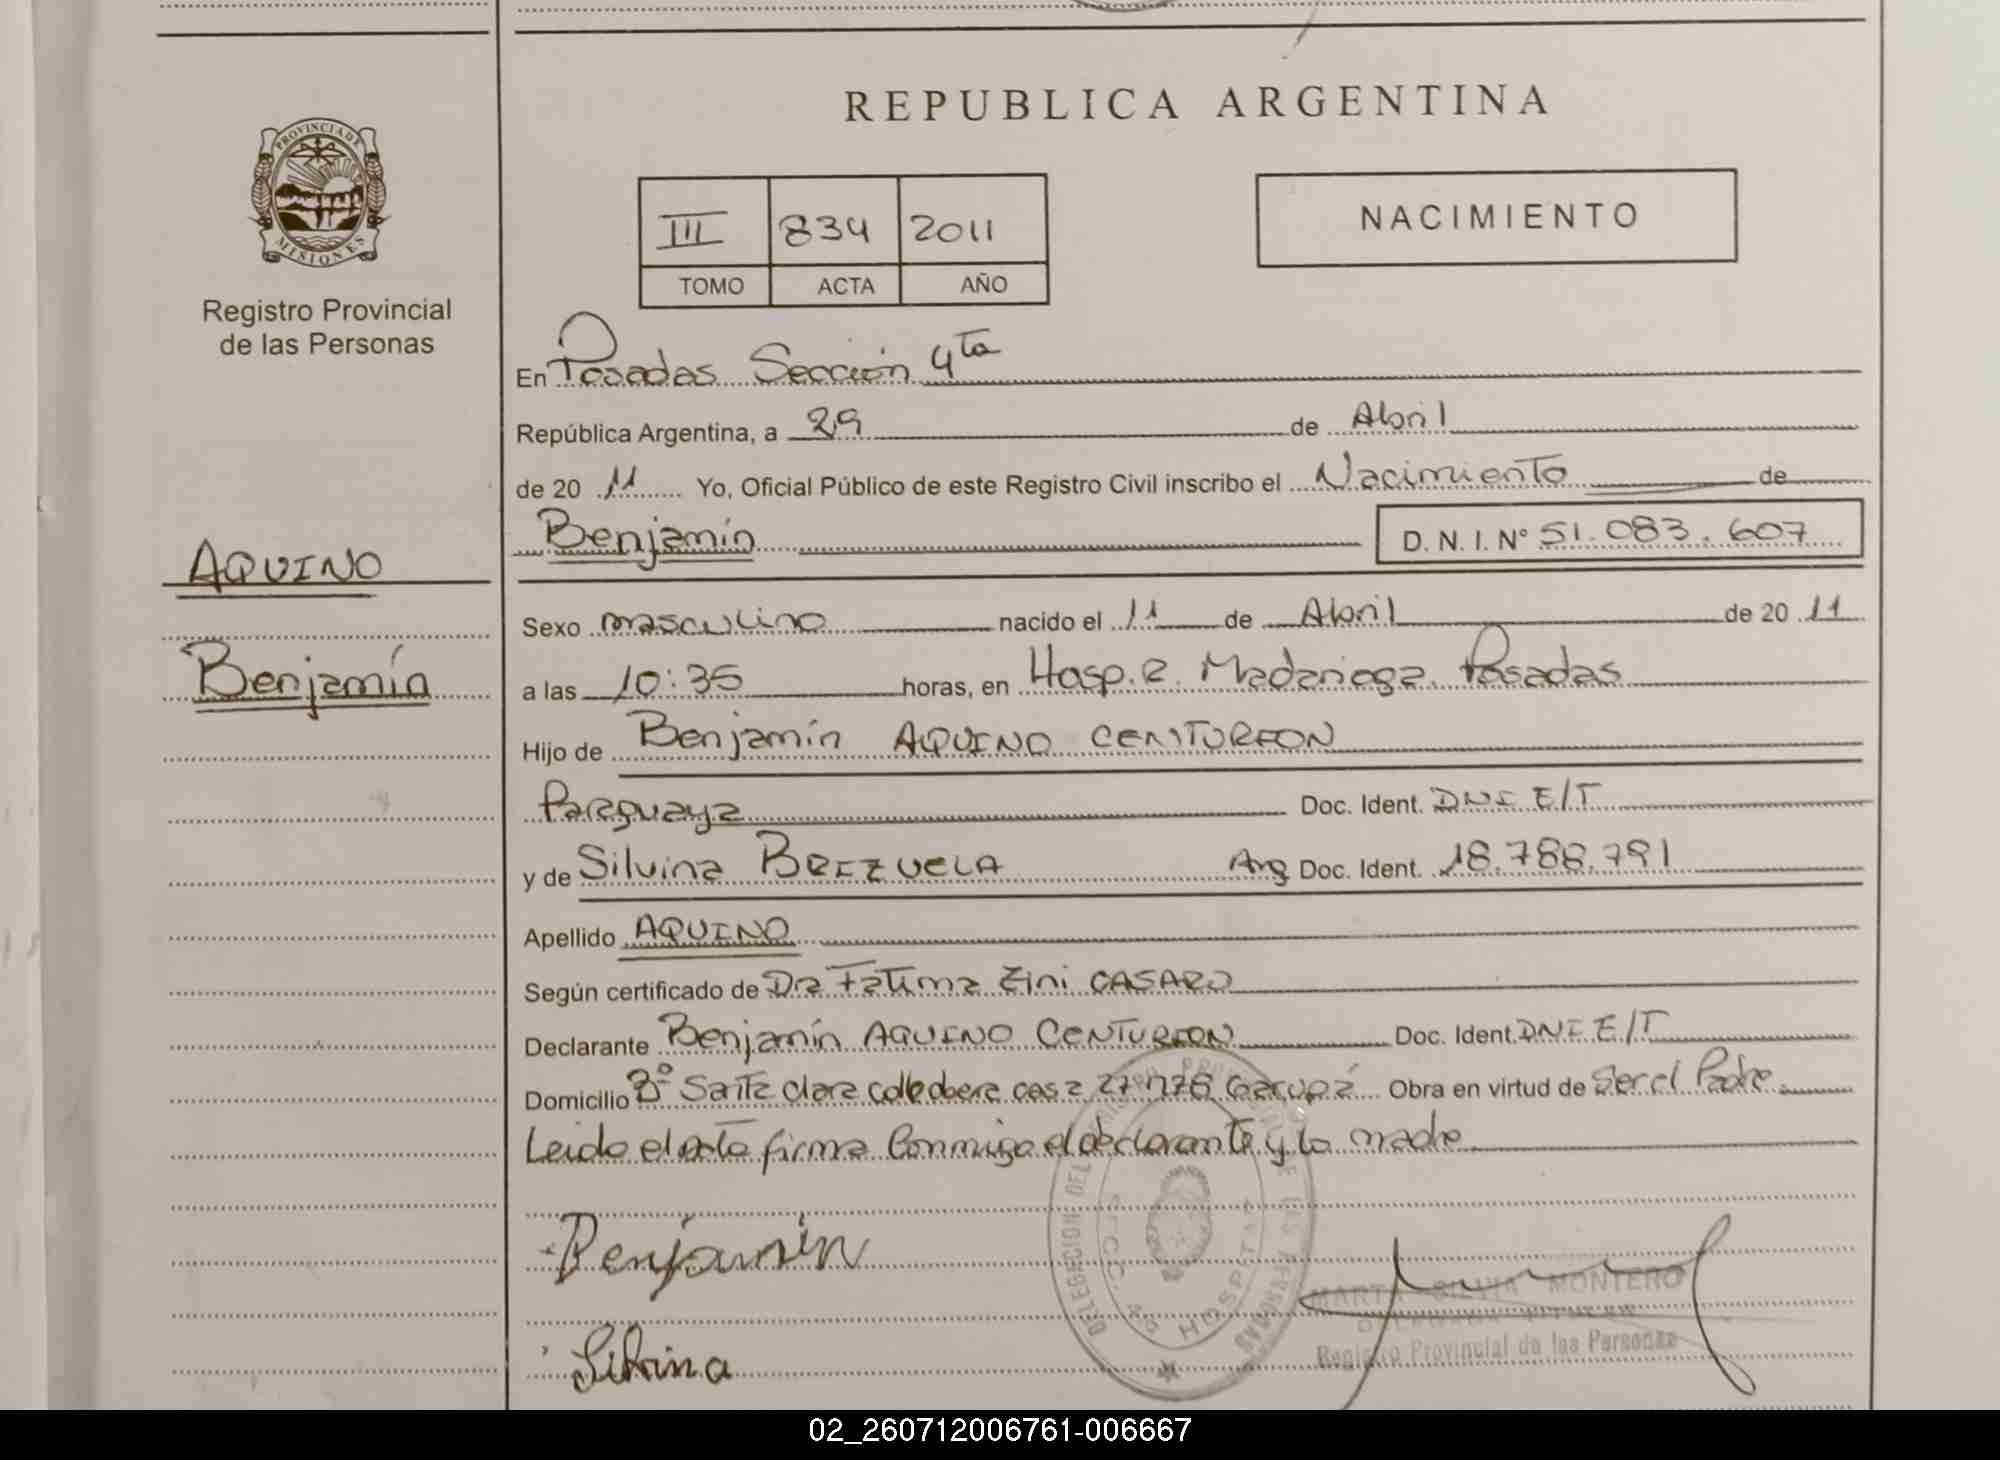 REPUBLICA ARGENTINA
PROVINCIA DE MISIONES
Registro Provincial
de las Personas
III 834 2011
TOMO ACTA AÑO
NACIMIENTO
En Posadas Sección 4ta
República Argentina, a 29 de Abril
de 2011 Yo, Oficial Público de este Registro Civil inscribo el Nacimiento de
Benjamín D. N. I. Nº 51.083.607
AQUINO
Benjamín
Sexo masculino nacido el 11 de Abril de 2011
a las 10:35 horas, en Hosp. R. Madariaga. Posadas
Hijo de Benjamín AQUINO CENTURION
Paraguaya Doc. Ident. DNI E/T
y de Silvina BRIZUELA Arg Doc. Ident. 18.788.791
Apellido AQUINO
Según certificado de Dra Fatima Zini CASARO
Declarante Benjamín AQUINO CENTURION Doc. Ident. DNI E/T
Domicilio Bº Santa Clara calle casa 27 Garupá Obra en virtud de Ser el Padre
Leido el acta firma Conmigo el declarante y la madre
Benjamín
Silvina
DELEGACION DEL REGISTRO PROVINCIAL DE LAS PERSONAS
SECC. 4a HOSPITAL
MARTA SILVIA MONTERO
DELEGADA TITULAR
Registro Provincial de las Personas
02_260712006761-006667